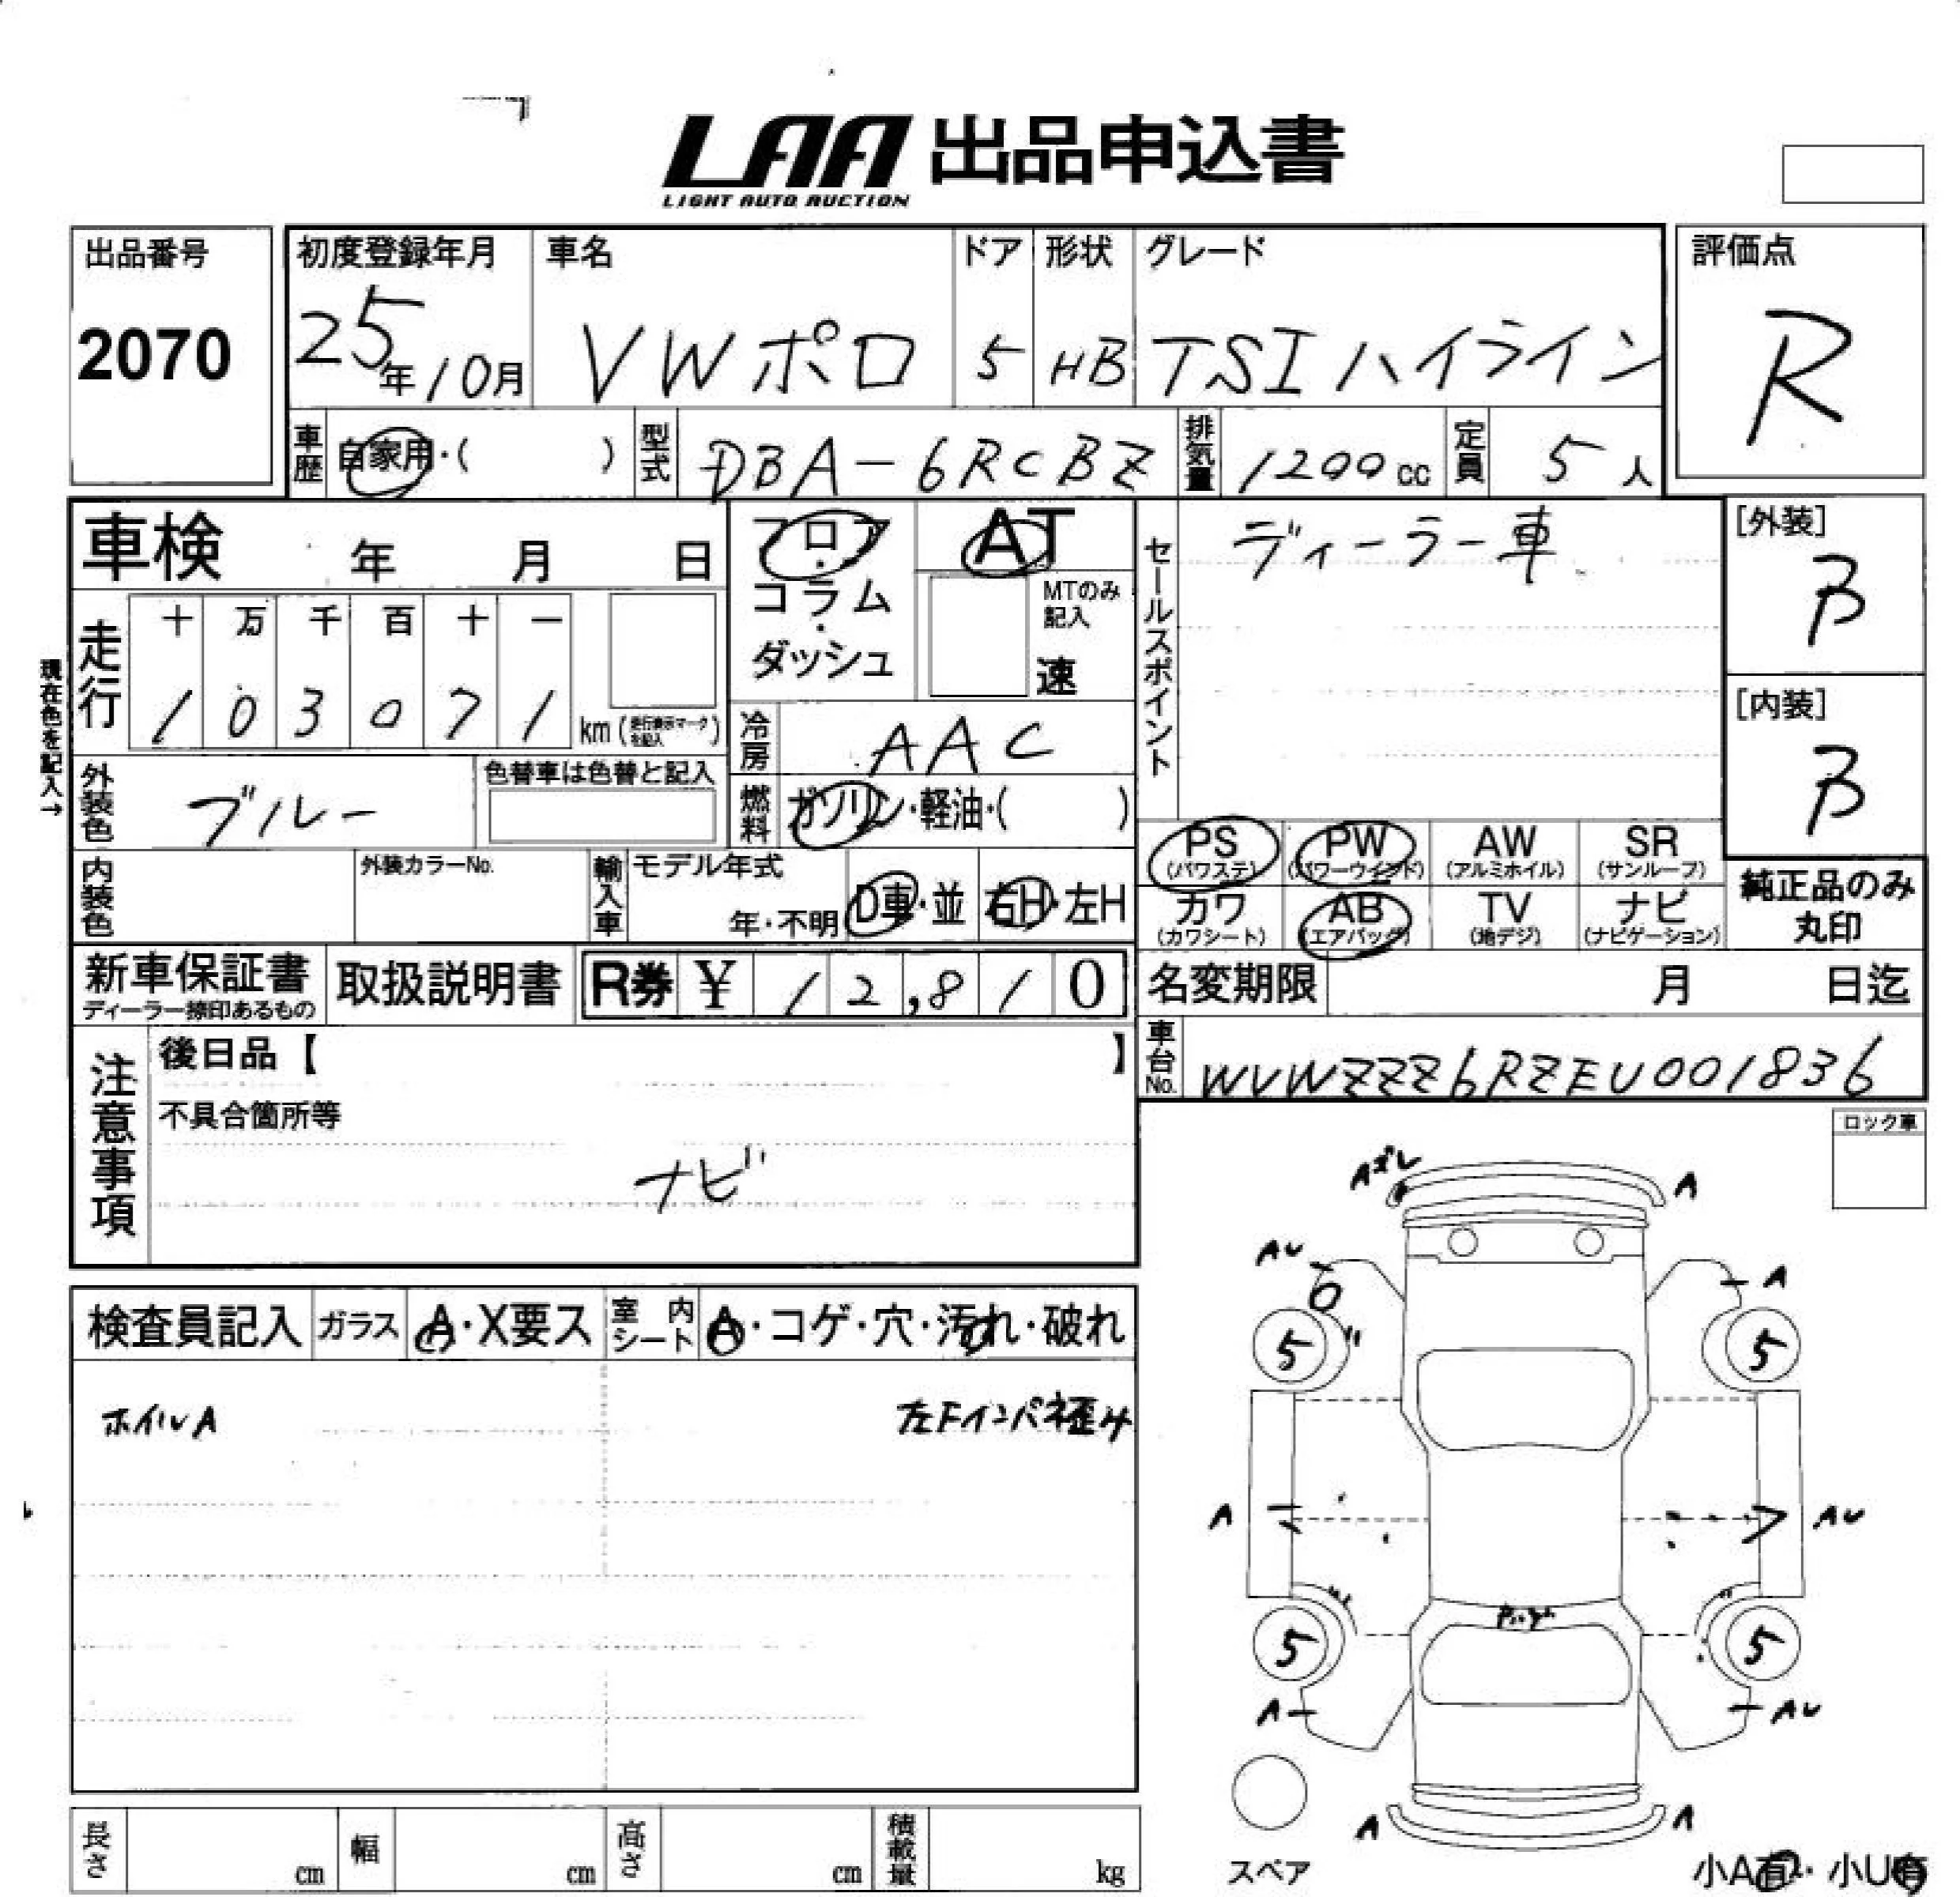 LAA 出品申込書
LIGHT AUTO AUCTION
出品番号
2070
初度登録年月
25年10月
車名
VWポロ
ドア
5
形状
HB
グレード
TSIハイライン
評価点
R
車歴 自家用・( )
型式 DBA-6RCBZ
排気量 1200cc
定員 5人
車検 年 月 日
フロア・コラム・ダッシュ
AT
MTのみ記入
速
セールスポイント
ディーラー車
[外装]
B
[内装]
B
現在色を記入→
走行
十 万 千 百 十 一
1 0 3 0 7 1 km (走行表示マークを記入)
冷房 AAC
外装色 ブルー
色替車は色替と記入
燃料 ガソリン・軽油・( )
PS (パワステ)
PW (パワーウインド)
AW (アルミホイル)
SR (サンルーフ)
カワ (カワシート)
AB (エアバッグ)
TV (地デジ)
ナビ (ナビゲーション)
純正品のみ丸印
内装色
外装カラーNo.
輸入車
モデル年式
年・不明
D車・並
右H・左H
新車保証書
ディーラー捺印あるもの
取扱説明書
R券 ¥ 12,810
名変期限 月 日迄
車台No. WVWZZZ6RZEU001836
注意事項
後日品【 】
不具合箇所等
ナビ
ロック車
検査員記入
ガラス A・X要ス
室内シート A・コゲ・穴・汚れ・破れ
ホイルA
左Fインパ歪み
Aズレ
A
AU
A
5
5
A
AU
5
5
A
AU
A
A
スペア
小A有・小U有
長さ cm
幅 cm
高さ cm
積載量 kg